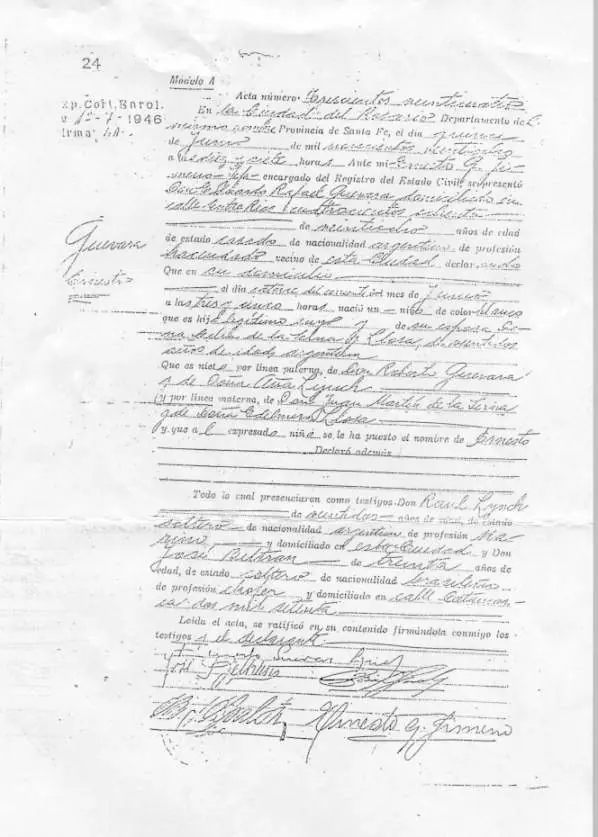 24
Modelo A
Acta número: Trescientos veinticuatro
xp. Coft. Enrol.
1946
En la Ciudad del Rosario Departamento del
mismo nombre Provincia de Santa Fe, el día quince
de Junio de mil novecientos veintiocho
a las diez y siete horas Ante mi Ernesto G. Ji-
meno Jefe encargado del Registro del Estado Civil, se presentó
Don Ernesto Rafael Guevara domiciliado en
calle Entre Rios cuatrocientos ochenta
de veintiocho años de edad
de estado casado de nacionalidad argentina de profesión
hacendado vecino de esta Ciudad declarando
Guevara
Ernesto
Que en su domicilio
el día catorce del corriente del mes de Junio
a las tres y cinco horas nació un niño de color blanco
que es hijo legítimo suyo y de su esposa Do-
ña Celia de la Serna y Llosa, de veintidos
años de edad argentina
Que es nieto por línea paterna, de Don Roberto Guevara
y de Doña Ana Lynch
y por línea materna, de Don Juan Martín de la Serna
y de Doña Edelmira Llosa
y que al expresado niño se le ha puesto el nombre de Ernesto
Declaró además
Todo lo cual presenciaron como testigos Don Raul Lynch
de veintidos años de edad, de estado
soltero de nacionalidad argentina de profesión Ma-
rino y domiciliado en esta Ciudad y Don
José Beltrán de treinta años de
edad, de estado soltero de nacionalidad brasileña
de profesión chofer y domiciliado en calle Catamar-
ca dos mil setenta
Leída el acta, se ratificó en su contenido firmándola conmigo los
testigos y el declarante
Ernesto Guevara Lynch
José Beltrán
Ernesto G. Jimeno